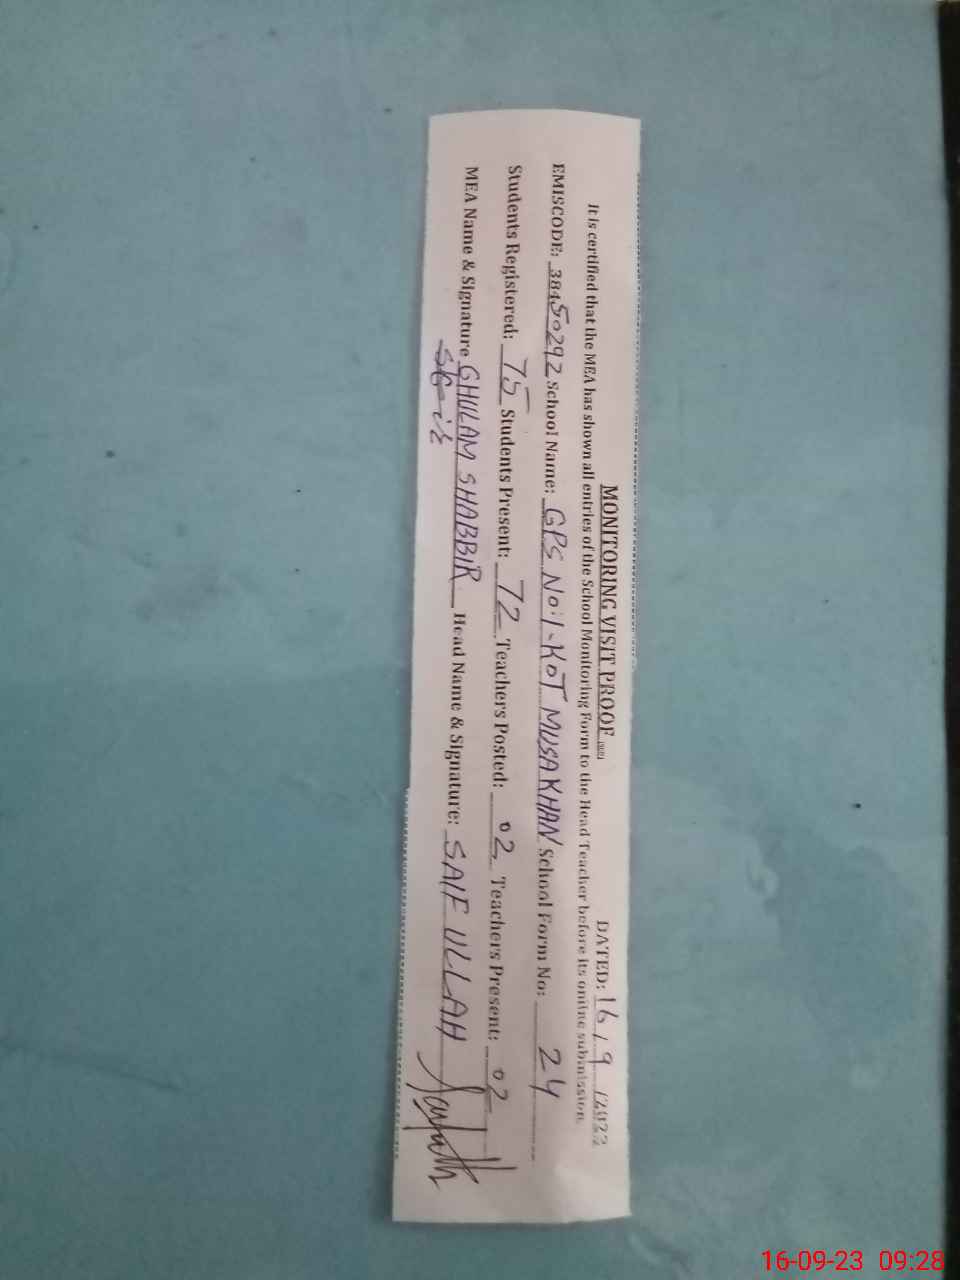 MONITORING VISIT PROOF
DATED: 16 / 9 /2023
It is certified that the MEA has shown all entries of the School Monitoring Form to the Head Teacher before its online submission.
EMISCODE: 38450292 School Name: GPS No:1-KOT MUSA KHAN School Form No: 24
Students Registered: 75 Students Present: 72 Teachers Posted: 02 Teachers Present: 02
MEA Name & Signature GHULAM SHABBIR Head Name & Signature: SAIF ULLAH
16-09-23 09:28